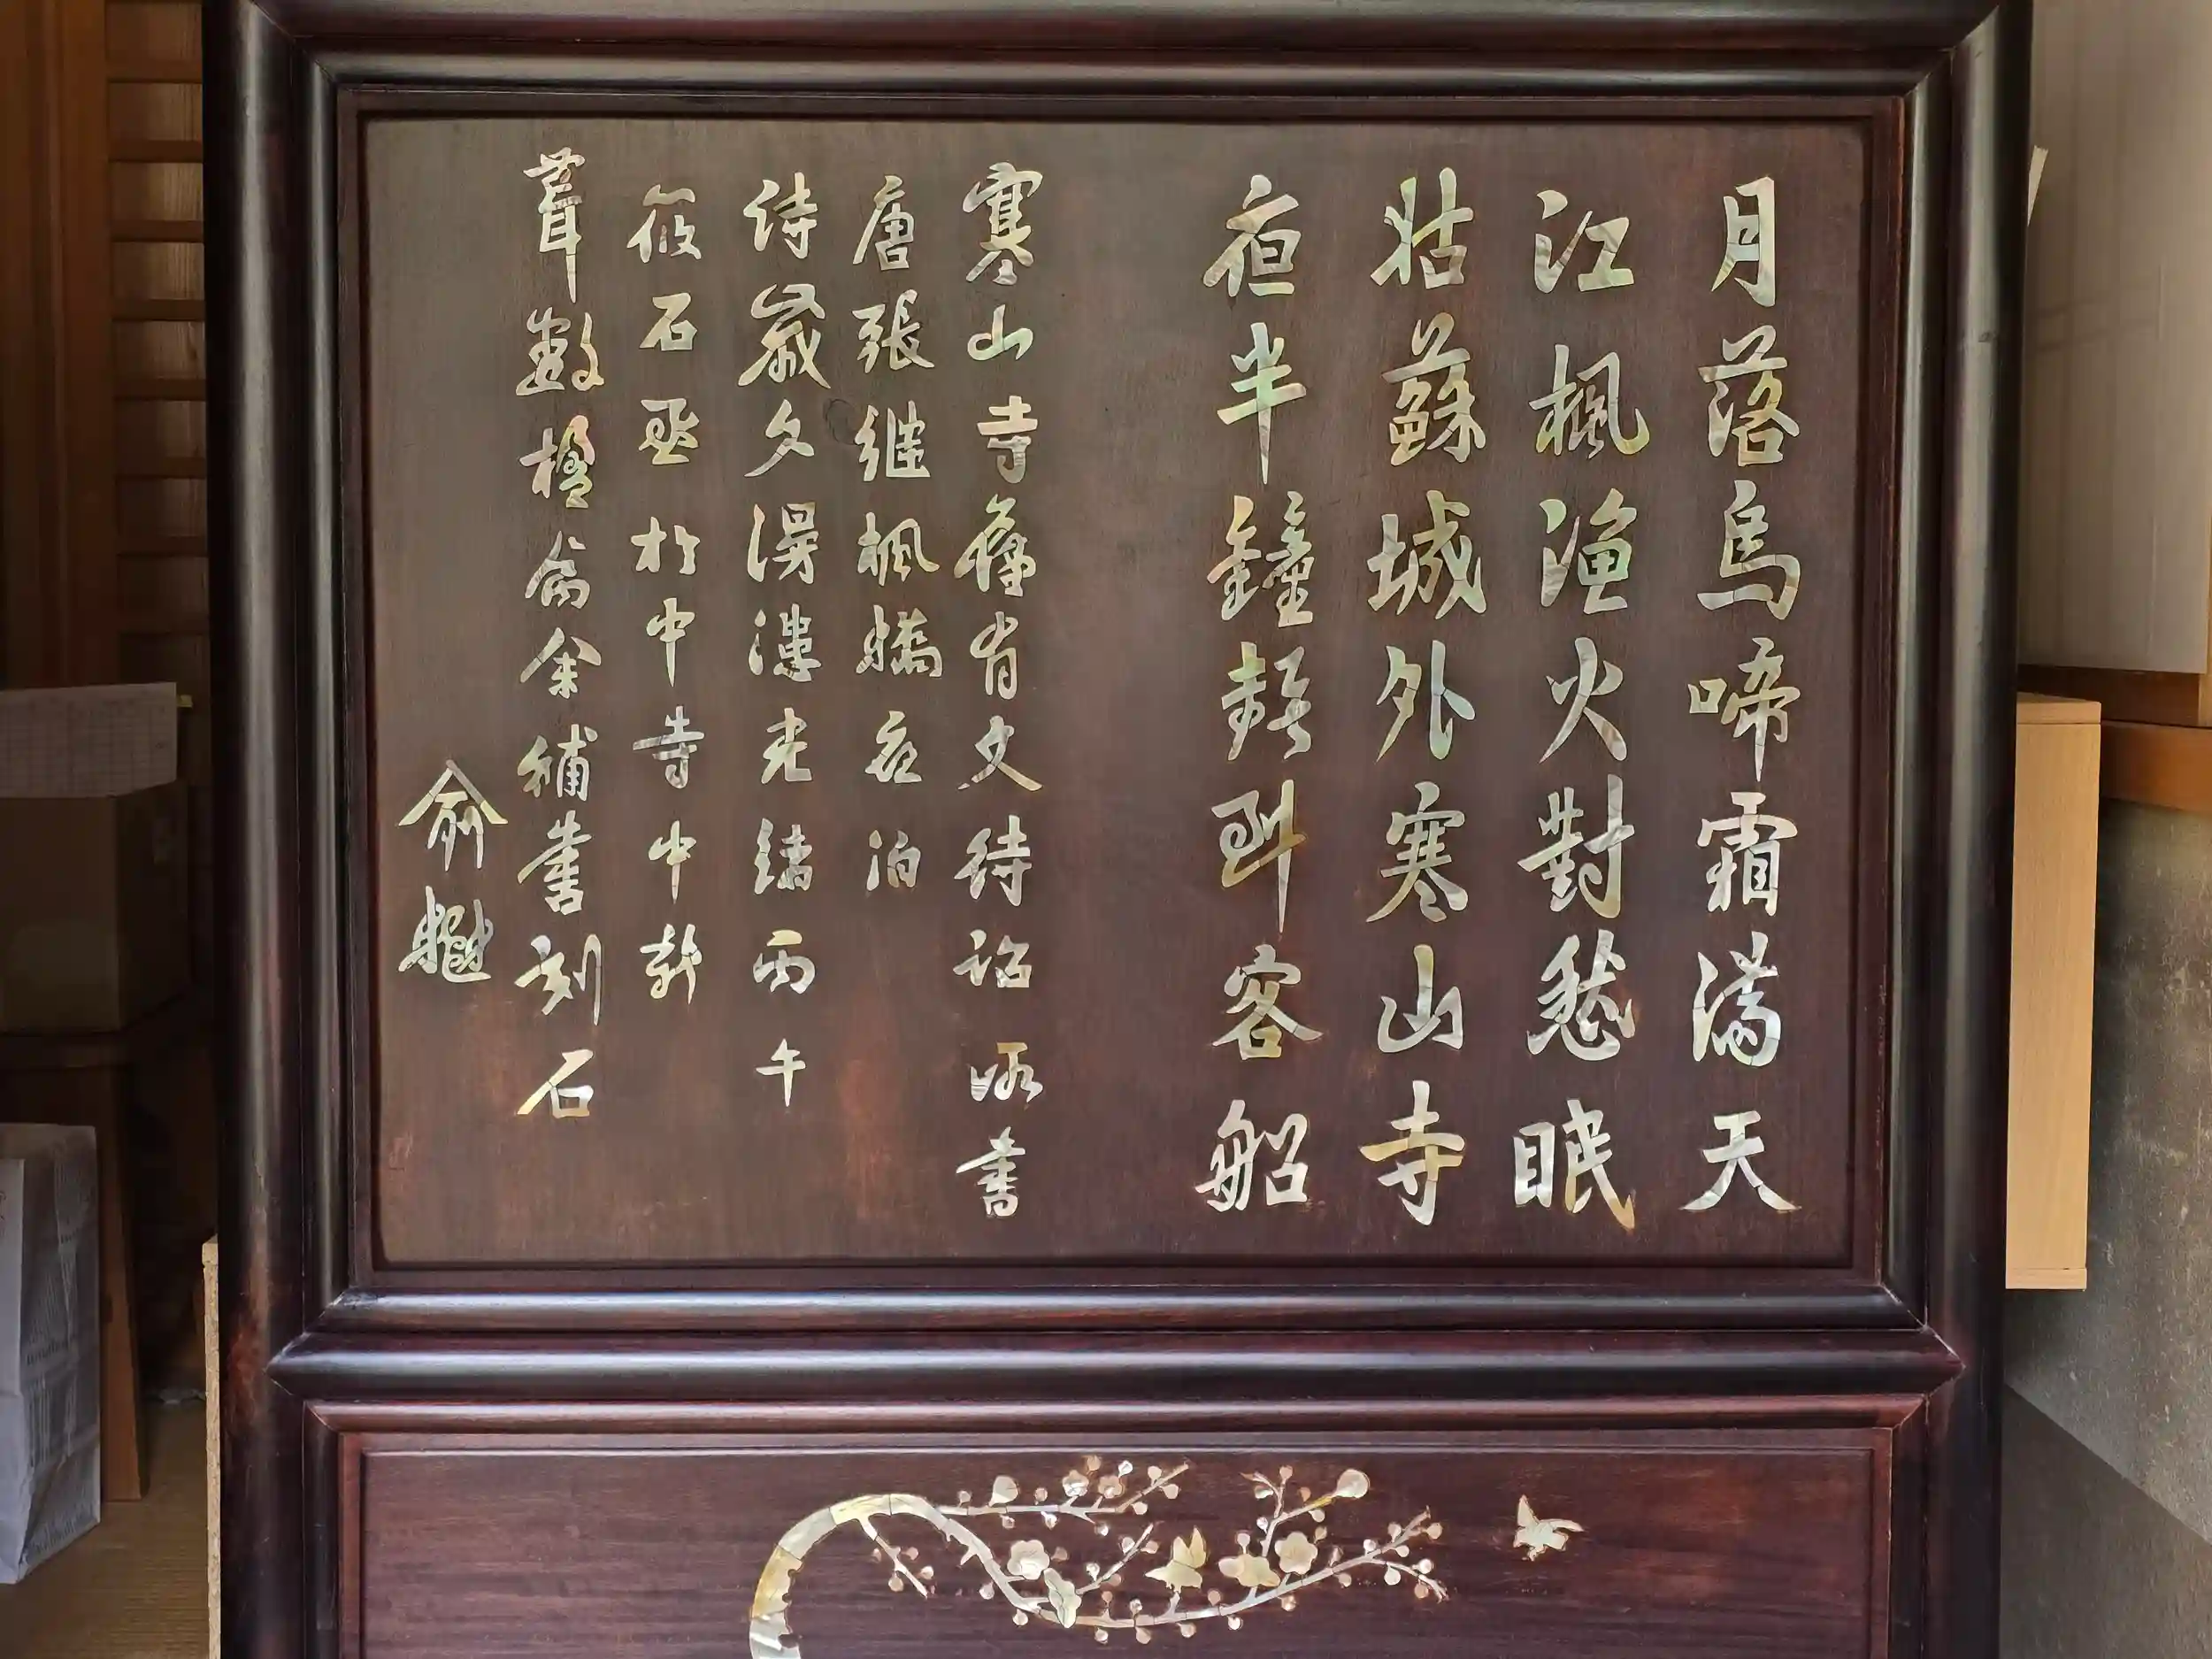 月落烏啼霜滿天
江楓漁火對愁眠
姑蘇城外寒山寺
夜半鐘聲到客船
寒山寺舊有文待詔所書
唐張継楓橋夜泊
詩歲久漫漶光緒丙午
筱石丞於中寺中新
葺數楹屬余補書刻石
俞樾